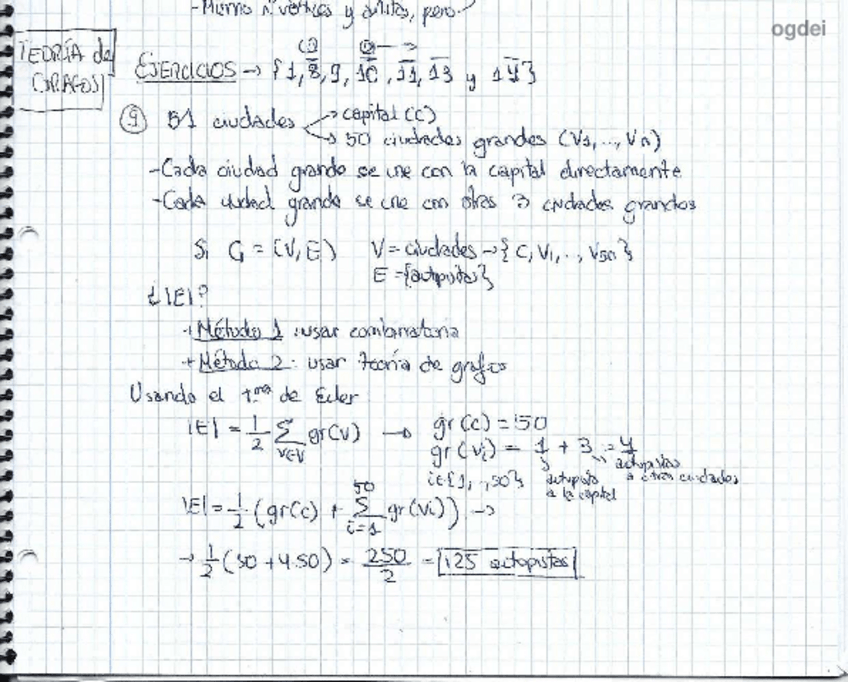 - Mismo nº vértices y aristas, pero
ogdei
TEORÍA de GRAFOS
EJERCICIOS → {1, 8, 9, 10, 11, 13 y 14}
⑨ 51 ciudades → capital (C)
→ 50 ciudades grandes (V1, ..., Vn)
- Cada ciudad grande se une con la capital directamente
- Cada ciudad grande se une con otras 3 ciudades grandes
Si G = (V, E) V = ciudades → {C, V1, .., V50}
E = {autopistas}
¿|E|?
+ Método 1: usar combinatoria
+ Método 2: usar teoría de grafos
Usando el tma de Euler
|E| = 1/2 Σ v∈V gr(v) → gr(c) = 50
gr(vi) = 1 + 3 = 4
i∈{1, .., 50} autopista a la capital autopistas a otras ciudades
|E| = 1/2 (gr(c) + Σ i=1 50 gr(vi)) →
→ 1/2 (50 + 4·50) = 250/2 = 125 autopistas